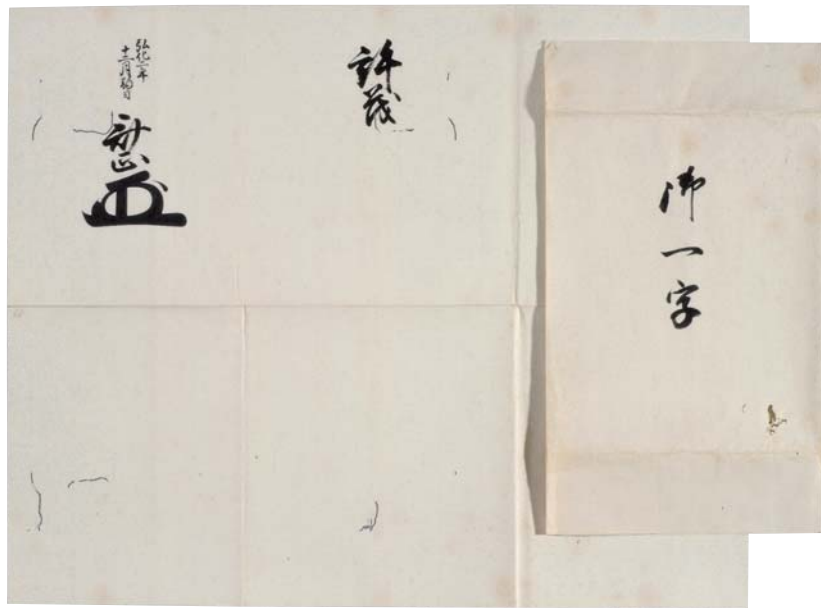 御一字
許茂
弘化二年
十二月朔日